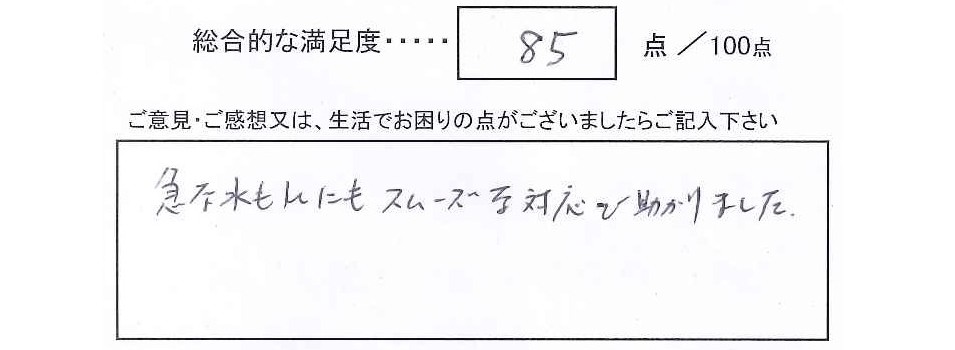 総合的な満足度・・・・・ 85 点 ／100点
ご意見・ご感想又は、生活でお困りの点がございましたらご記入下さい
急な水もれにもスムーズな対応で助かりました.